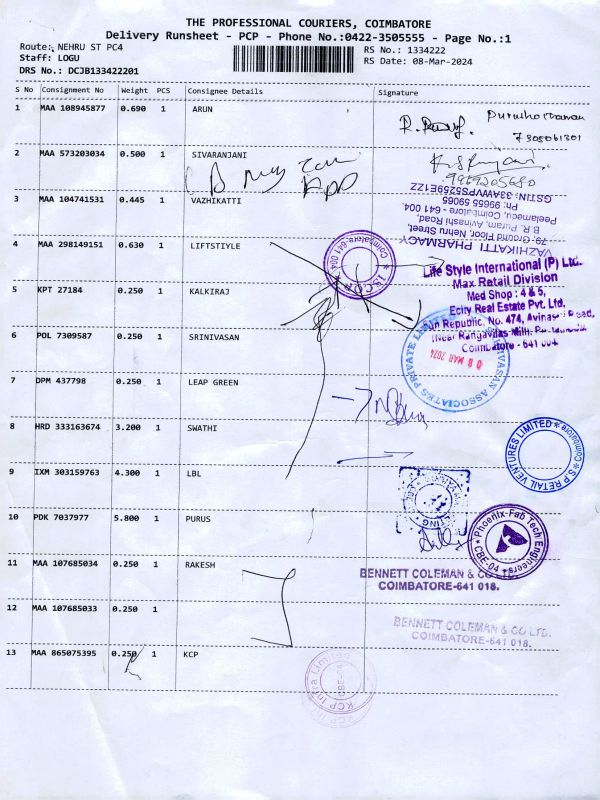 THE PROFESSIONAL COURIERS, COIMBATORE
Delivery Runsheet - PCP - Phone No.:0422-3505555 - Page No.:1
Route: NEHRU ST PC4
RS No.: 1334222
Staff: LOGU
RS Date: 08-Mar-2024
DRS No.: DCJB133422201
S No Consignment No Weight PCS Consignee Details Signature
1 MAA 108945877 0.690 1 ARUN
7305061301
2 MAA 573203034 0.500 1 SIVARANJANI
9989205680
3 MAA 104741531 0.445 1 VAZHIKATTI
VAZHIKATTI PHARMACY
79, Ground Floor, Nehru Street,
B.R. Puram, Avinashi Road,
Peelamedu, Coimbatore - 641 004.
Ph: 99655 59065
4 MAA 298149151 0.630 1 LIFTSTIYLE
Coimbatore-641 004
Life Style International (P) Ltd.
Max Retail Division
Med Shop : 4 & 5,
Ecity Real Estate Pvt. Ltd.
Fun Republic, No. 474, Avinashi Road,
(Near Rangavilas Mill),
Coimbatore - 641 004
5 KPT 27184 0.250 1 KALKIRAJ
6 POL 7309587 0.250 1 SRINIVASAN
ASSOCIATES PRIVATE
08 MAR 2024
7 DPM 437798 0.250 1 LEAP GREEN
8 HRD 333163674 3.200 1 SWATHI
S P RETAIL VENTURES LIMITED * Coimbatore *
9 IXM 303159763 4.300 1 LBL
10 PDK 7037977 5.800 1 PURUS
Phoenix-Fab Tech Engineers
CBE-04
11 MAA 107685034 0.250 1 RAKESH
BENNETT COLEMAN & CO LTD.
COIMBATORE-641 018.
12 MAA 107685033 0.250 1
BENNETT COLEMAN & CO LTD.
COIMBATORE-641 018.
13 MAA 865075395 0.250 1 KCP
KCP Infra Limited
CBE-04